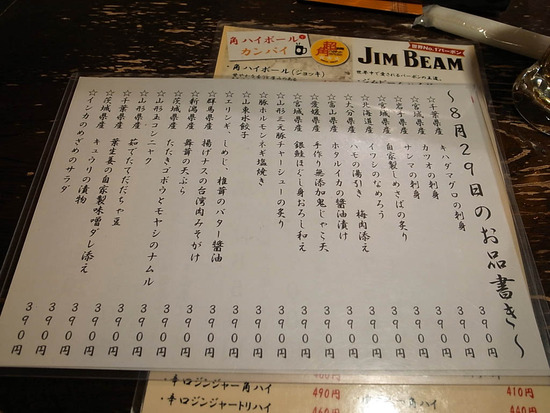 角ハイボール
カンパイ
角ハイボール(ジョッキ)
世界No.1バーボン
JIM BEAM
世界中で愛されるバーボンの王道。
～8月29日のお品書き～
☆千葉県産 キハダマグロの刺身 390円
☆宮城県産 カツオの刺身 390円
☆岩手県産 サンマの刺身 390円
☆宮城県産 自家製〆めさばの炙り 390円
☆北海道産 イワシのなめろう 390円
☆大分県産 ハモの湯引き 梅肉添え 390円
☆富山県産 ホタルイカの醤油漬け 390円
☆愛媛県産 手作り無添加鬼じゃこ天 390円
☆宮城県産 銀鮭ほぐし身おろし和え 390円
☆山形三元豚チャーシューの炙り 390円
☆豚ホルモンネギ塩焼き 390円
☆山東水餃子 390円
☆エリンギ、しめじ、椎茸のバター醤油 390円
☆群馬県産 揚げナスの台湾肉みそがけ 390円
☆新潟県産 舞茸の天ぷら 390円
☆茨城県産 たたきゴボウとモヤシのナムル 390円
☆山形玉コンニャク 390円
☆山形県産 茹でたてだだちゃ豆 390円
☆千葉県産 葉生姜の自家製味噌ダレ添え 390円
☆茨城県産 キュウリの漬物 390円
☆インカのめざめのサラダ 390円
・辛口ジンジャー角ハイ 490円
・辛口ジンジャートリハイ 460円
410円
440円